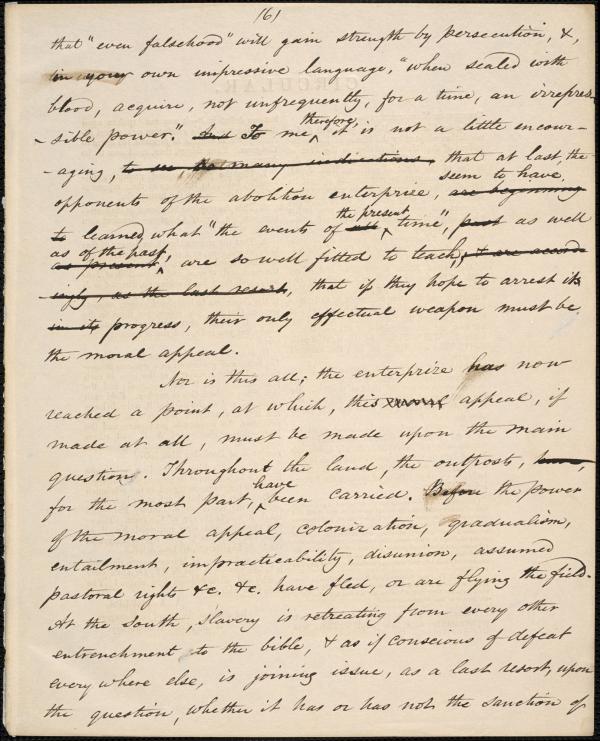 (6)
that "even falsehood" will gain strength by persecution, &,
in your own impressive language, "when sealed with
blood, acquire, not unfrequently, for a time, an irrepres-
-sible power." And To me, therefore, it is not a little encour-
-aging, to see, many indications, that at last, the
opponents of the abolition enterprise, seem to have, are beginning
to learned, what "the events of all the present time", past as well
as present as of the past, are so well fitted to teach, & are accord
ingly, as the last resort, that if they hope to arrest its
in its progress, their only effectual weapon must be
the moral appeal.
Nor is this all; the enterprize has now
reached a point, at which, this moral appeal, if
made at all, must be made upon the main
question. Throughout the land, the outposts, have,
for the most part, have been carried. Before the power
of the moral appeal, colonization, gradualism,
entailment, impracticability, disunion, assumed
pastoral rights &c. &c. have fled, or are flying the field.
At the South, Slavery is retreating from every other
entrenchment to the bible, & as if conscious of defeat
every where else, is joining issue, as a last resort, upon
the question, whether it has or has not the sanction of